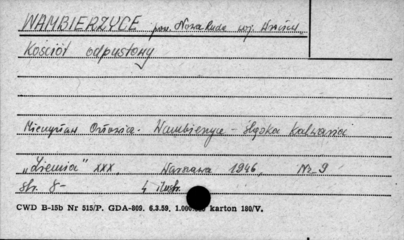 WAMBIERZYCE pow. Nowa Ruda woj. Wrocł.
Kościół odpustowy
Mieczysław Orłowicz. Wambierzyce - śląska Kalwaria
„Ziemia" XXX, Warszawa 1946, Nr 9
str. 8- 4 ilustr.
CWD B-15b Nr 515/P. GDA-809. 6.3.59, 1.000 karton 180/V.